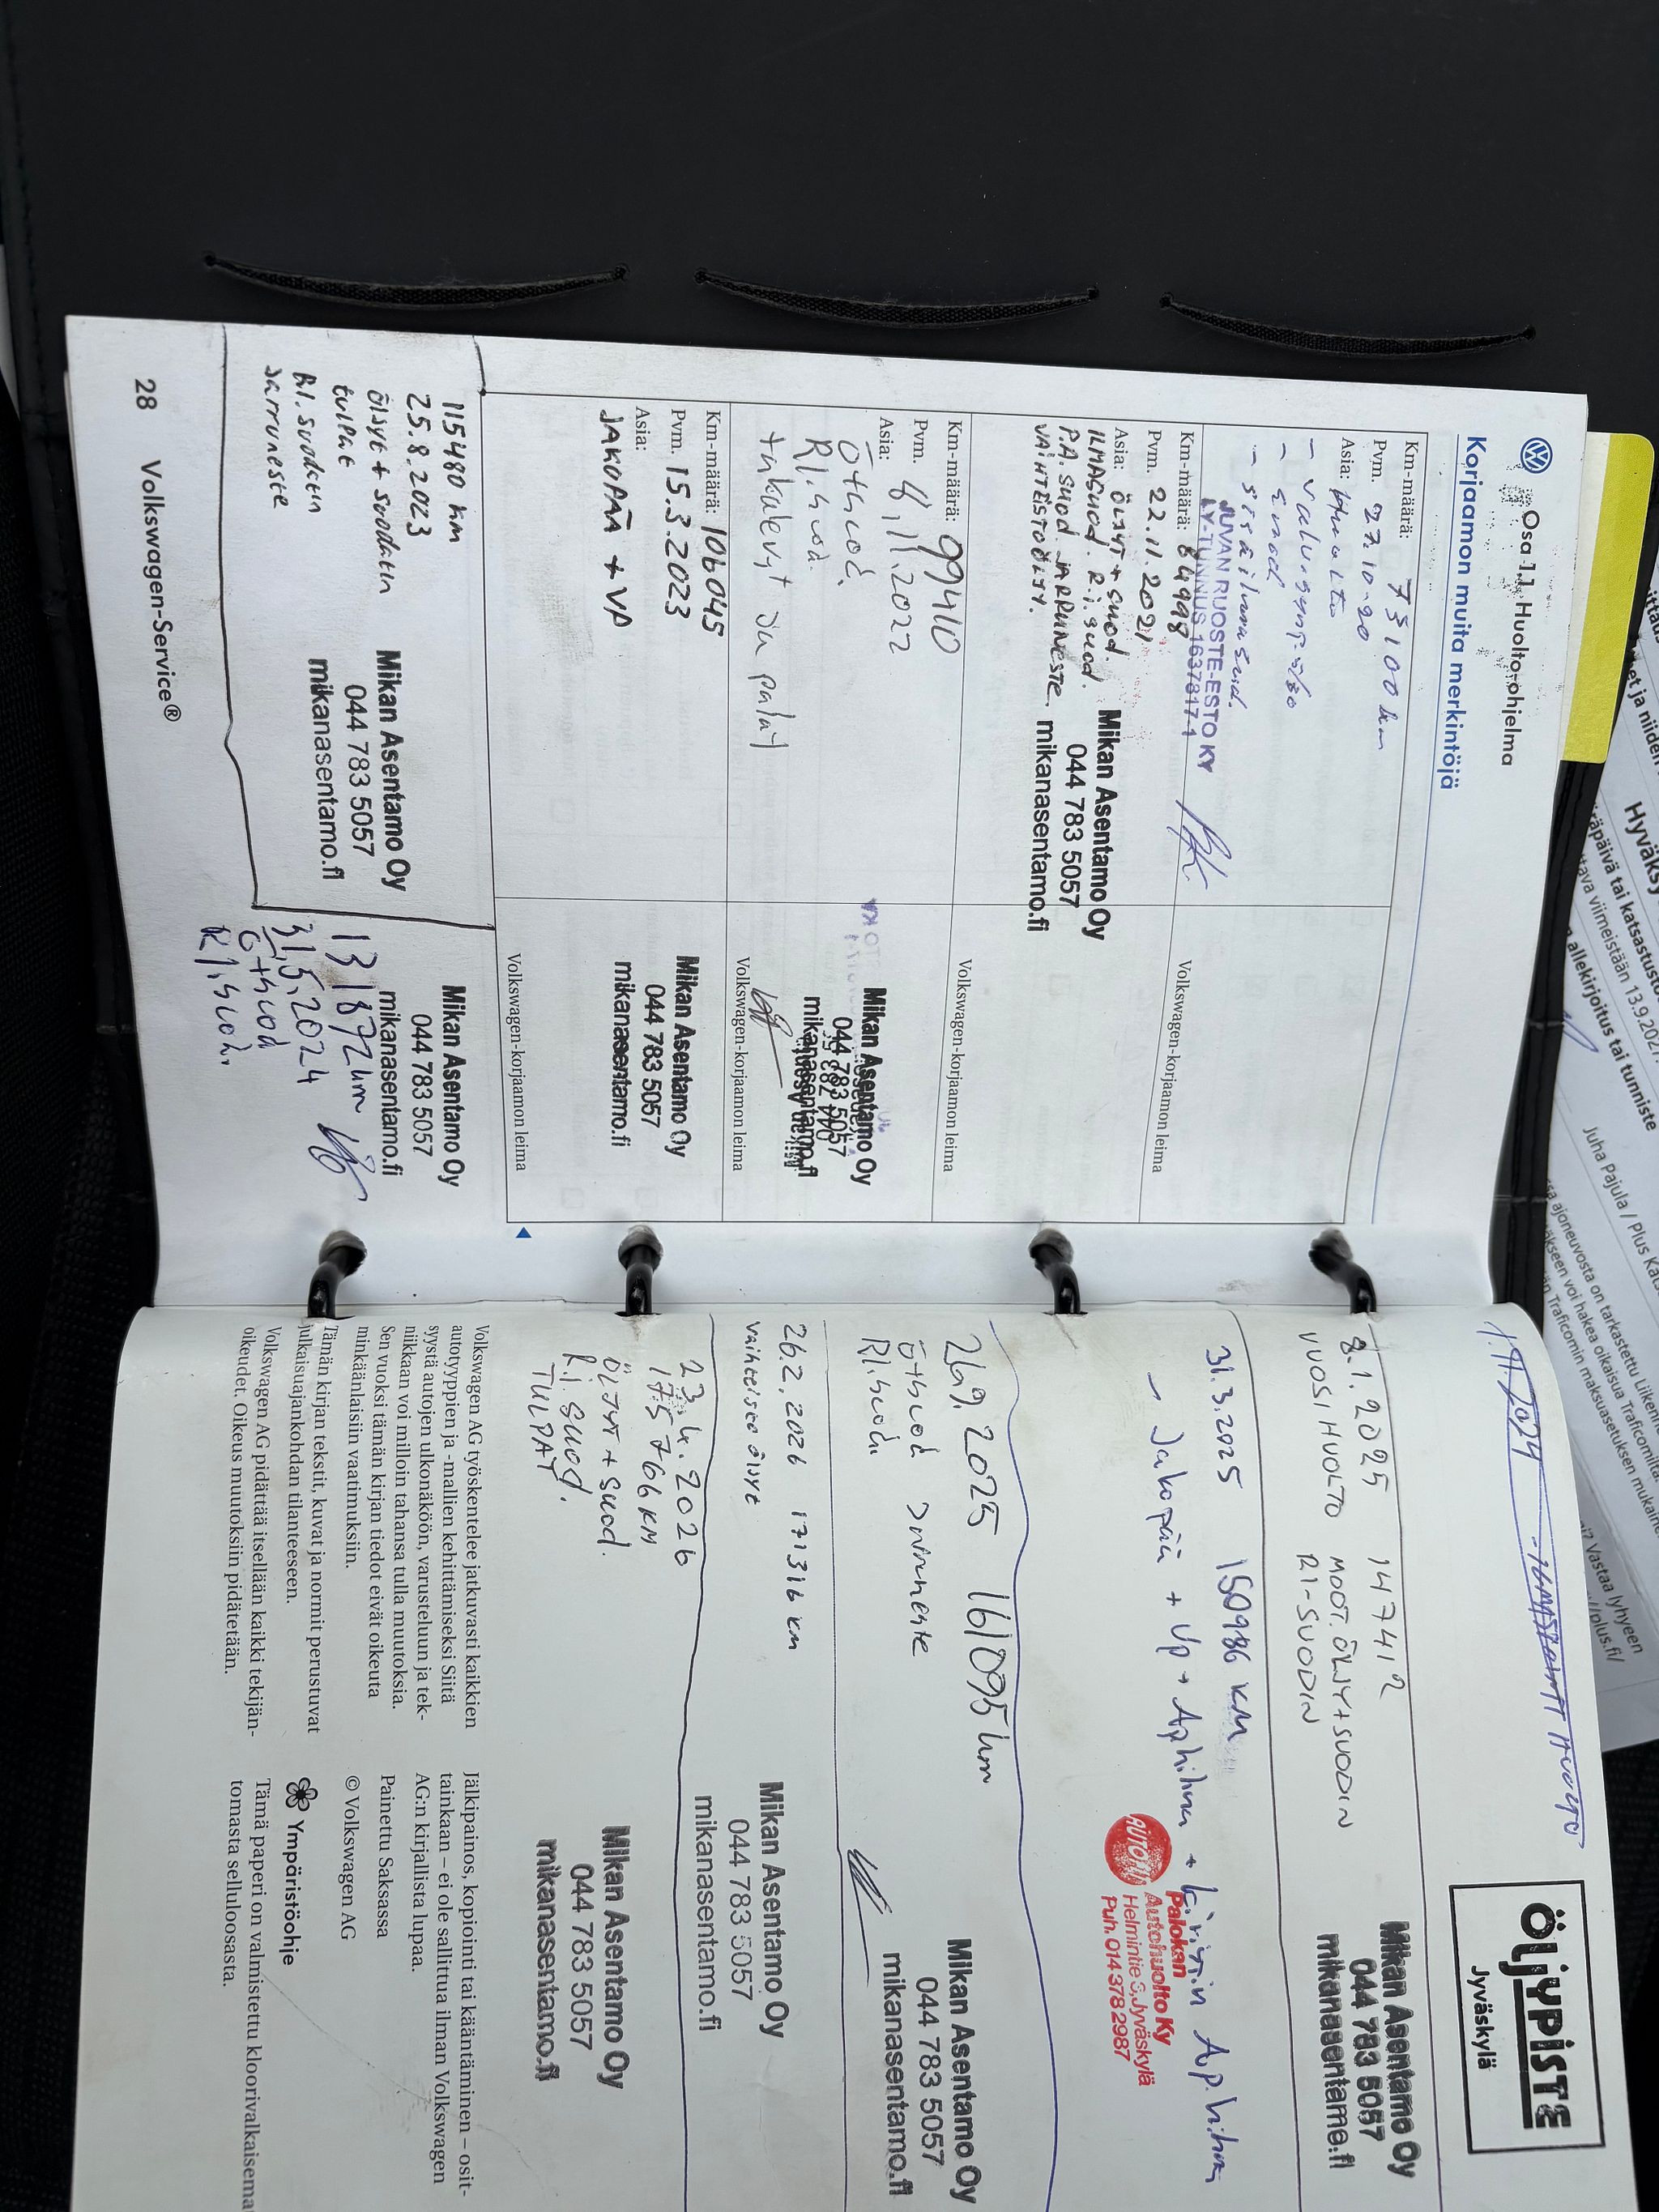 Osa 1.1 Huolto-ohjelma
Korjaamon muita merkintöjä
Km-määrä: 73100 km
Pvm. 27.10-20
Asia: Huolto
- sisäilmasuod.
JUVAN RUOSTE-ESTO KY
LY-TUNNUS 1637817-1
Volkswagen-korjaamon leima
Km-määrä: 84998
Pvm. 22.11.2021
Asia: ÖLJYT + SUOD.
ILMASUOD. R.i. SUOD.
P.A. SUOD. JARRUNESTE.
VAIHTEISTOÖLJY.
Mikan Asentamo Oy
044 783 5057
mikanasentamo.fi
Volkswagen-korjaamon leima
Km-määrä: 99410
Pvm. 8.11.2022
Asia:
ö+suod.
RI.suod.
takalevyt ja palat
Mikan Asentamo Oy
044 783 5057
mikanasentamo.fi
Volkswagen-korjaamon leima
Km-määrä: 106045
Pvm. 15.3.2023
Asia:
JAKOPÄÄ + VP
Mikan Asentamo Oy
044 783 5057
mikanasentamo.fi
Volkswagen-korjaamon leima
115480 km
25.8.2023
öljyt + suodatin
tulpat
RI. suodatin
Jarruneste
Mikan Asentamo Oy
044 783 5057
mikanasentamo.fi
Mikan Asentamo Oy
044 783 5057
mikanasentamo.fi
131872 km
31.5.2024
ö+suod
RI.suod.
28 Volkswagen-Service®
ÖLJYPISTE
Jyväskylä
8.1.2025 147412
VUOSIHUOLTO MOOT.ÖLJY+SUODIN
RI-SUODIN
Mikan Asentamo Oy
044 783 5057
mikanasentamo.fi
31.3.2025 150986 km
- Jakopää + Vp + Aphihna + kiristin Ap.hihna
Palokan
Autohuolto Ky
Helmintie 3, Jyväskylä
Puh. 014 378 2987
26.9.2025 161095 km
ö+suod Jarruneste
RI.suod.
Mikan Asentamo Oy
044 783 5057
mikanasentamo.fi
26.2.2026 171316 km
vaihteisto öljyt
Mikan Asentamo Oy
044 783 5057
mikanasentamo.fi
23.4.2026
175766 KM
ÖLJYT + SUOD.
R.I. SUOD.
TULPAT
Mikan Asentamo Oy
044 783 5057
mikanasentamo.fi
Volkswagen AG työskentelee jatkuvasti kaikkien
autotyyppien ja -mallien kehittämiseksi Siitä
syystä autojen ulkonäköön, varusteluun ja tek-
niikkaan voi milloin tahansa tulla muutoksia.
Sen vuoksi tämän kirjan tiedot eivät oikeuta
minkäänlaisiin vaatimuksiin.
Tämän kirjan tekstit, kuvat ja normit perustuvat
julkaisuajankohdan tilanteeseen.
Volkswagen AG pidättää itsellään kaikki tekijän-
oikeudet. Oikeus muutoksiin pidätetään.
Jälkipainos, kopiointi tai kääntäminen – osit-
tainkaan – ei ole sallittua ilman Volkswagen
AG:n kirjallista lupaa.
Painettu Saksassa
© Volkswagen AG
Ympäristöohje
Tämä paperi on valmistettu kloorivalkaisema
tomasta selluloosasta.
Hyväksy
räpäivä tai katsastusto
ttava viimeistään 13.9.2027.
allekirjoitus tai tunniste
Juha Pajula / Plus Kats
sa ajoneuvosta on tarkastettu Liikenn
Vastaa lyhyeen